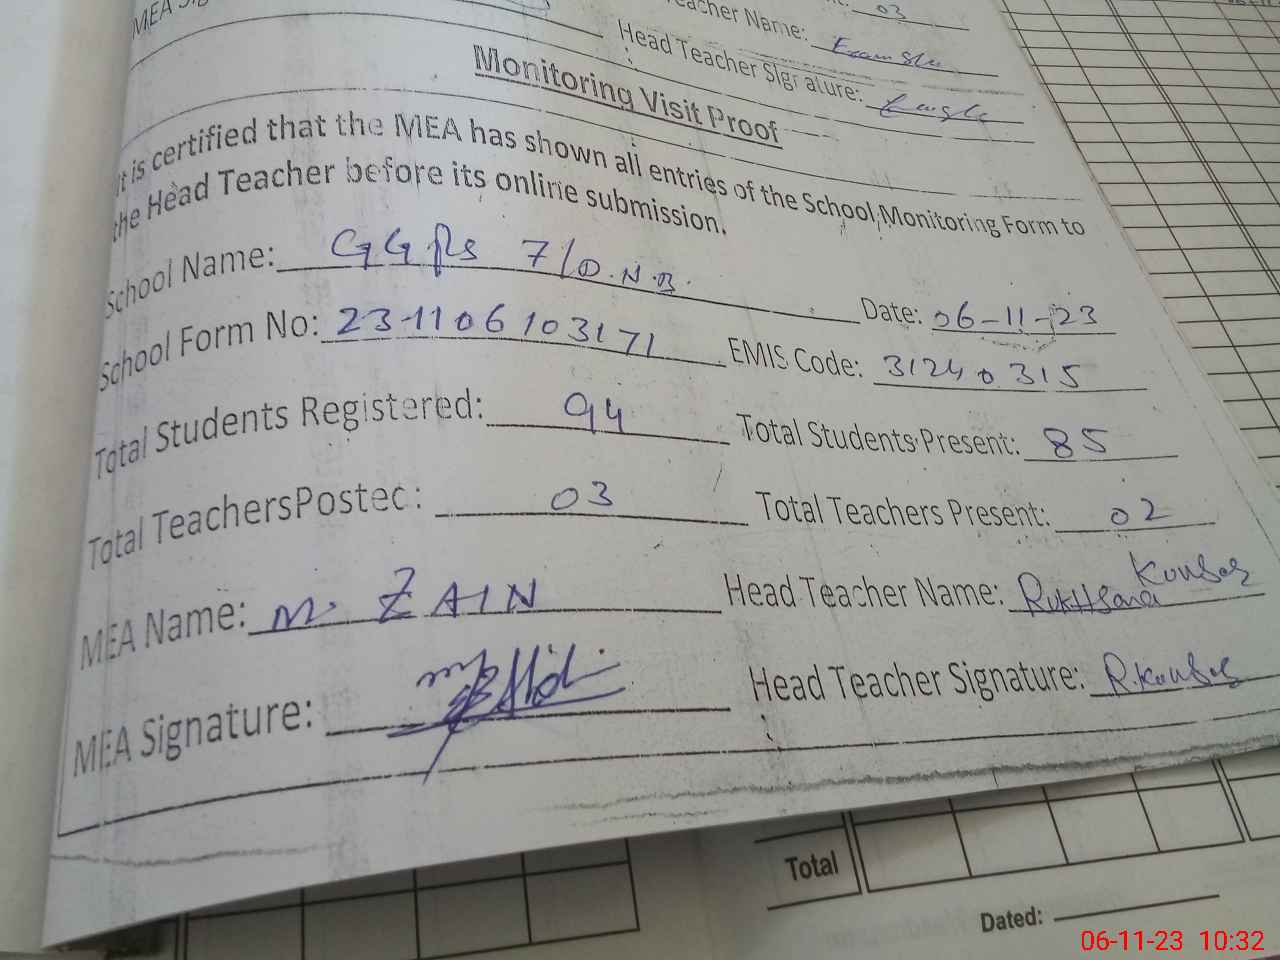 03
Teacher Name:
Head Teacher Signature:
Monitoring Visit Proof
It is certified that the MEA has shown all entries of the School Monitoring Form to
the Head Teacher before its online submission.
School Name: GGPS 7/D.N.B. Date: 06-11-23
School Form No: 231106103171 EMIS Code: 31240315
Total Students Registered: 94 Total Students Present: 85
Total Teachers Posted: 03 Total Teachers Present: 02
MEA Name: M. ZAIN Head Teacher Name: Rukhsana Kousar
MEA Signature: Head Teacher Signature: R.Kousar
Total
Dated:
06-11-23 10:32